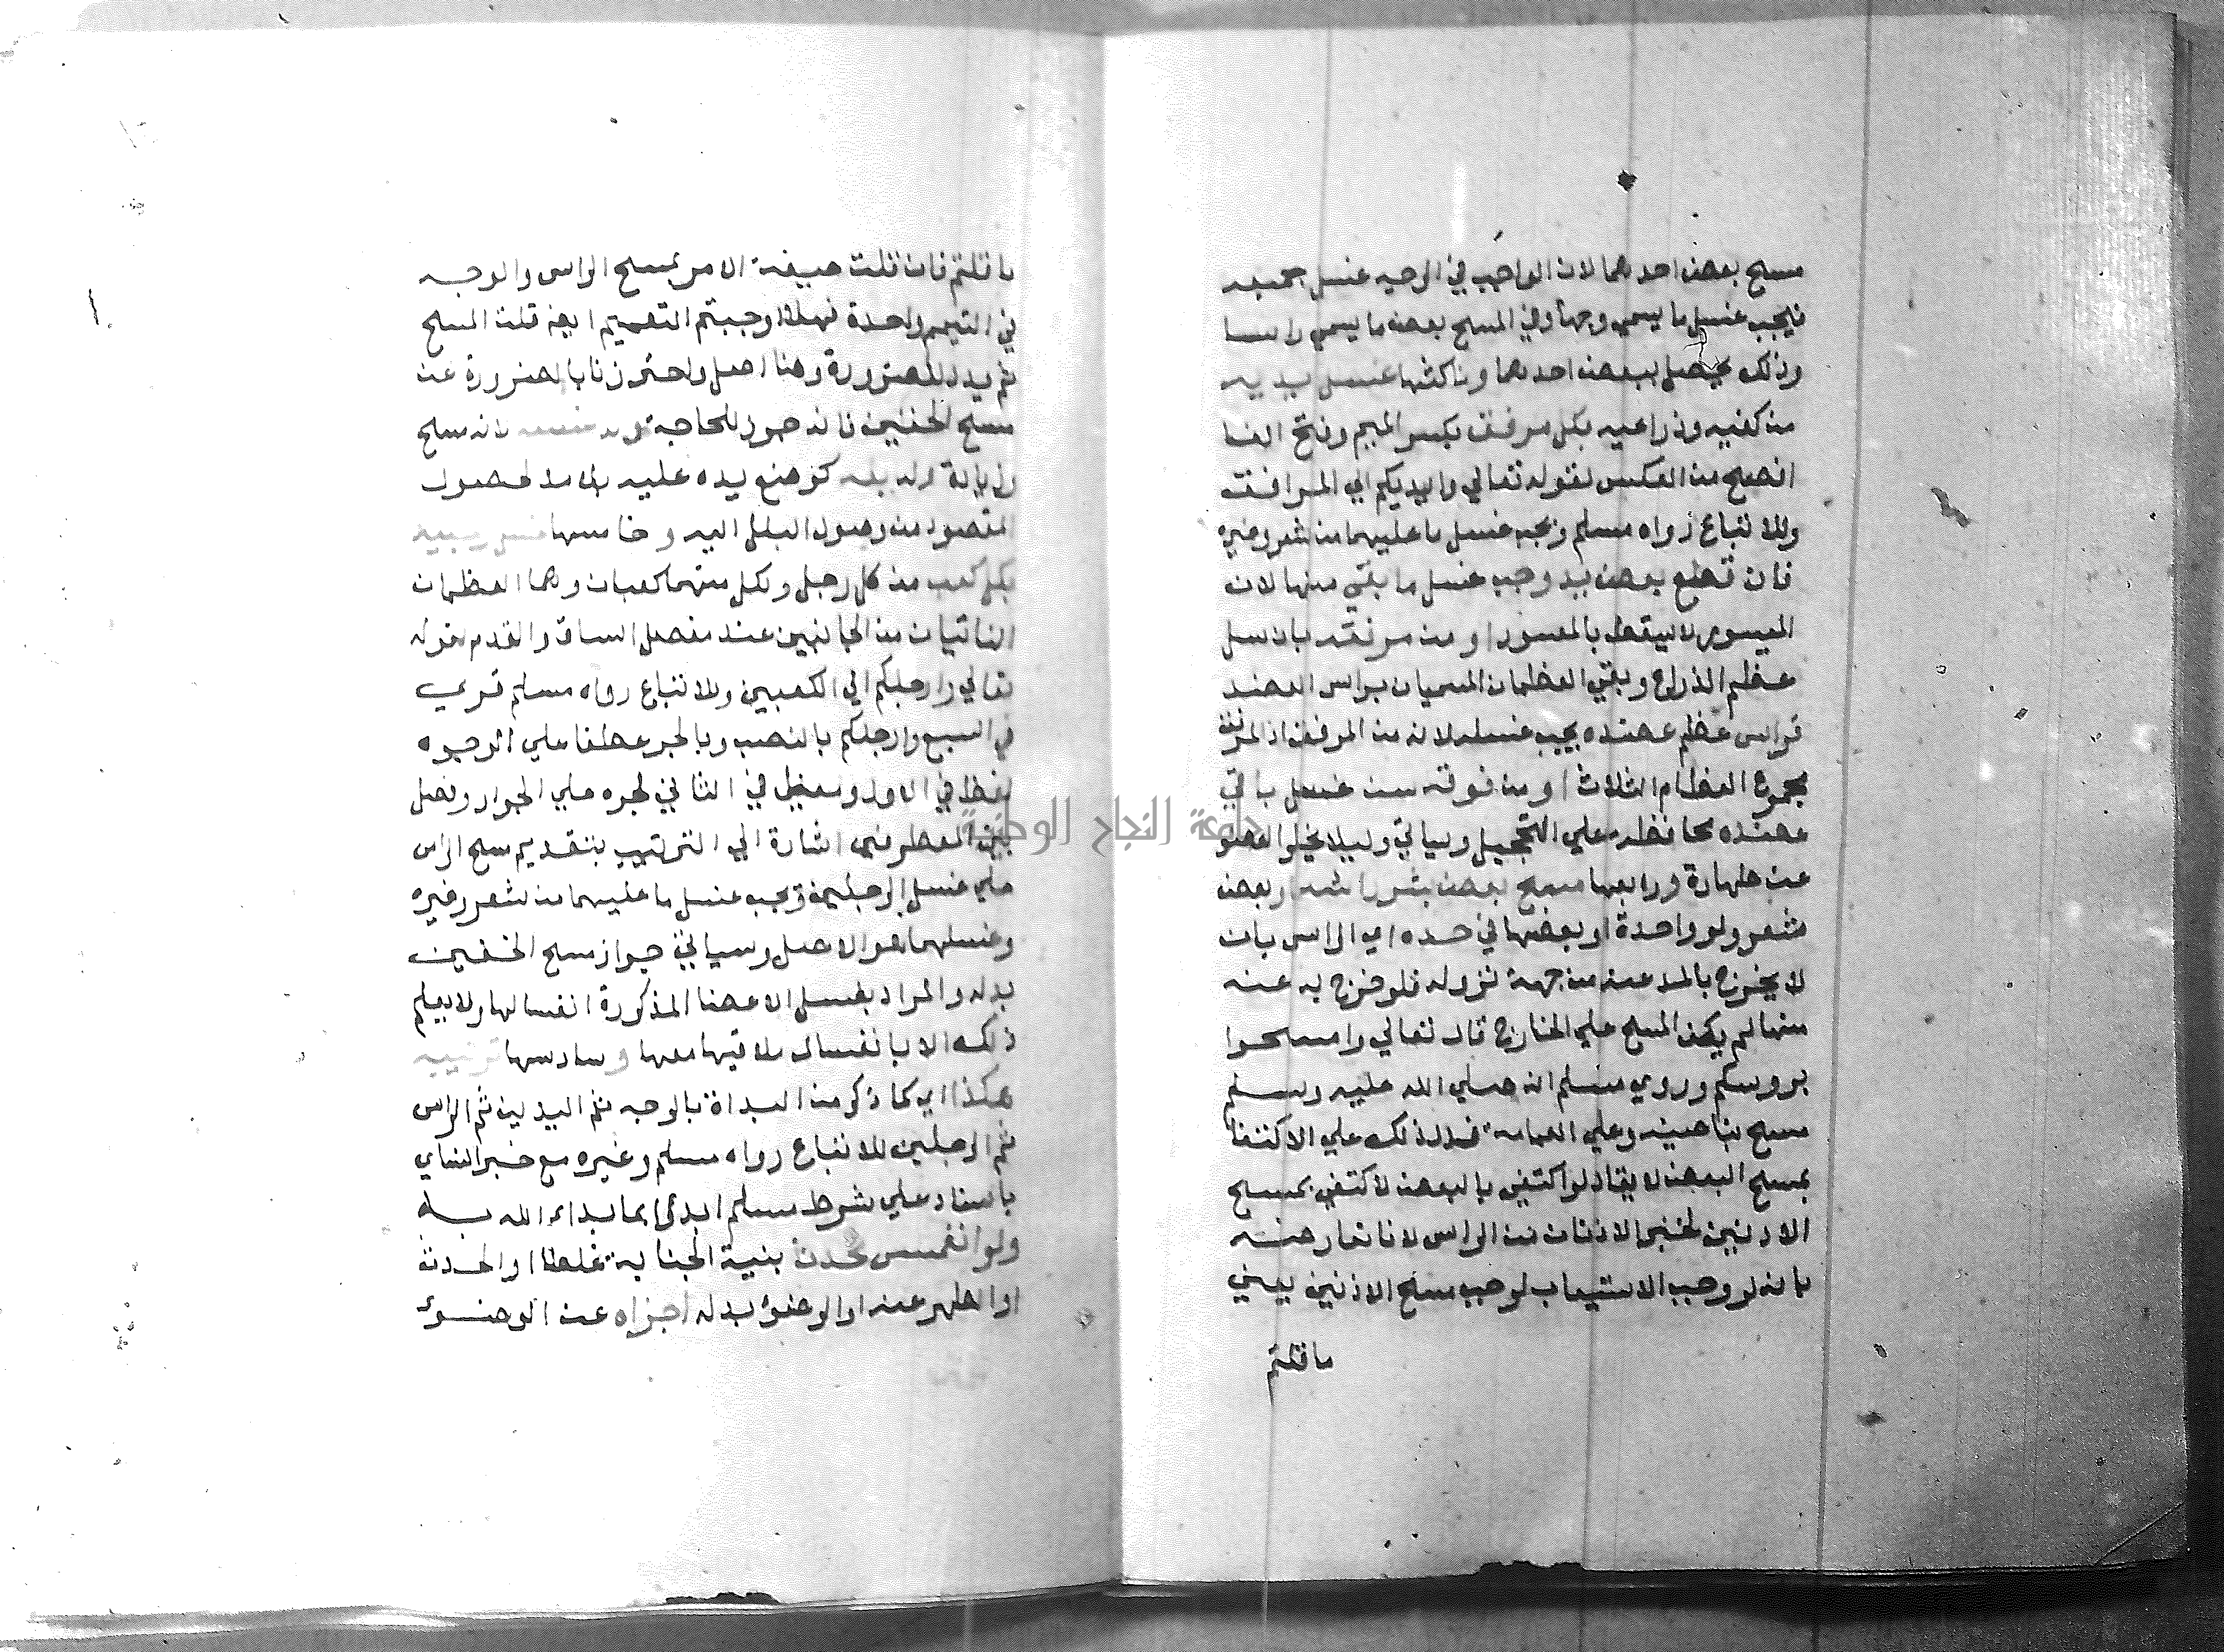 مسح بعض احدهما لان الواجب في الوجه غسل جميعه
فيجب غسل ما يسمي وجها وفي المسح بعض ما يسمي راسا
وذلك يحصل ببعض احدهما وثالثها غسل يديه
من كفيه وذراعيه بكل مرفق بكسر الميم وفتح الفا
افصح من العكس لقوله تعالي وايديكم الي المرافق
وللاتباع رواه مسلم ويجب غسل ما عليهما من شعر وغيره
فان قطع بعض يد وجب غسل ما بقي منها لان
الميسور لا يسقط بالمعسور او من مرفقه بان سل
عظم الذراع وبقي العظمان المسميان براس العضد
فراس عظم عضده يجب غسله لانه من المرفق اذ المرفق
مجموع العظام الثلاث او من فوقه سن غسل باقي
عضده محافظة علي التحجيل وسياتي وليلا يخلو العضو
عن طهارة ورابعها مسح بعض بشر راسه او بعض
شعر ولو واحدة او بعضها في حده اي الراس بان
لا يخرج بالمد عنه من جهة نزوله فلو خرج به عنه
منها لم يكف المسح علي الخارج قال تعالي وامسحوا
بروسكم وروي مسلم انه صلي الله عليه وسلم
مسح بناصيته وعلي العمامة فدل ذلك علي الاكتفا
بمسح البعض لا يقال لو اكتفي بالبعض لاكتفي بمسح
الاذنين لخبر الاذنان من الراس لانا نعارضه
بانه لو وجب الاستيعاب لوجب مسح الاذنين بعين
ما قلتم
ما قلتم فان قلت صيغة الامر بمسح الراس والوجه
في التيمم واحدة فهلا اوجبتم التعميم ايض قلت المسح
ثم بدل للضرورة وهنا اصل واحترزنا بالضرورة عن
مسح الخفين فانه جوز للحاجة لانه مسح
وزيادة وله بله كوضع يده عليه بلا مد لحصول
المقصود من وصول البلل اليه وخامسها غسل رجليه
بكل كعب من كل رجل ولكل منهما كعبان وهما العظمان
الناتيان من الجانبين عند مفصل الساق والقدم لقوله
تعالي وارجلكم الي الكعبين وللاتباع رواه مسلم قري
في السبع وارجلكم بالنصب وبالجر عطفا علي الوجوه
لفظا في الاول ومعني في الثاني لجره علي الجوار وفصل
بين المعطوفين اشارة الي الترتيب بتقديم مسح الراس
علي غسل الرجلين ويجب غسل ما عليهما من شعر وغيره
وغسلهما هو الاصل وسياتي جواز مسح الخفين
بدله والمراد بغسل الاعضا المذكورة انغسالها ولا يعلم
ذلك الا بانغسال ملاقيها معها وسادسها ترتيبه
هكذا اي كما ذكر من البداة بالوجه ثم اليدين ثم الراس
ثم الرجلين للاتباع رواه مسلم وغيره مع خبر النساي
باسناد علي شرط مسلم ابدوا بما بدا الله به
ولو انغمس محدث بنية الجنابة غلطا او الحدث
او الطهر عنه او الوضوء بدله اجزاه عن الوضوء
جامعة النجاح الوطنية